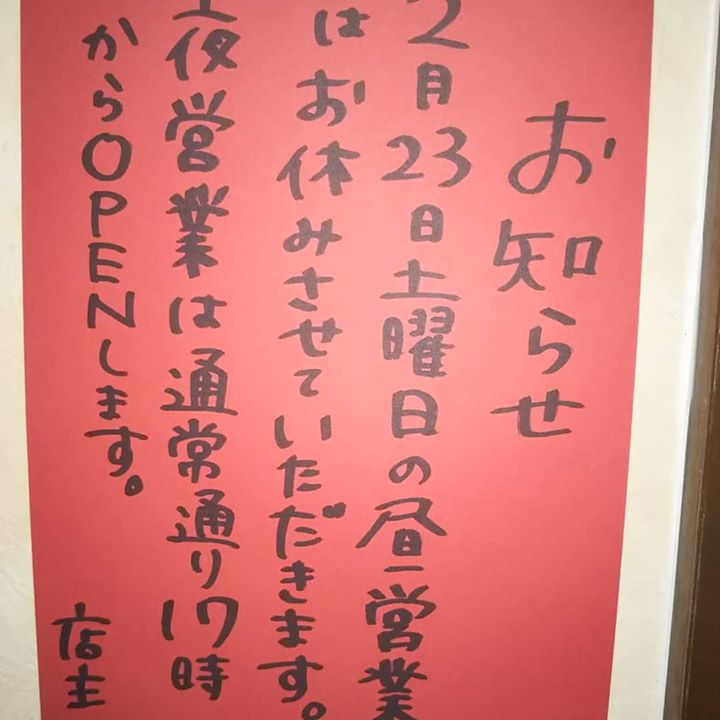 お知らせ
2月23日土曜日の昼営業
はお休みさせていただきます。
夜営業は通常通り17時
からOPENします。
店主